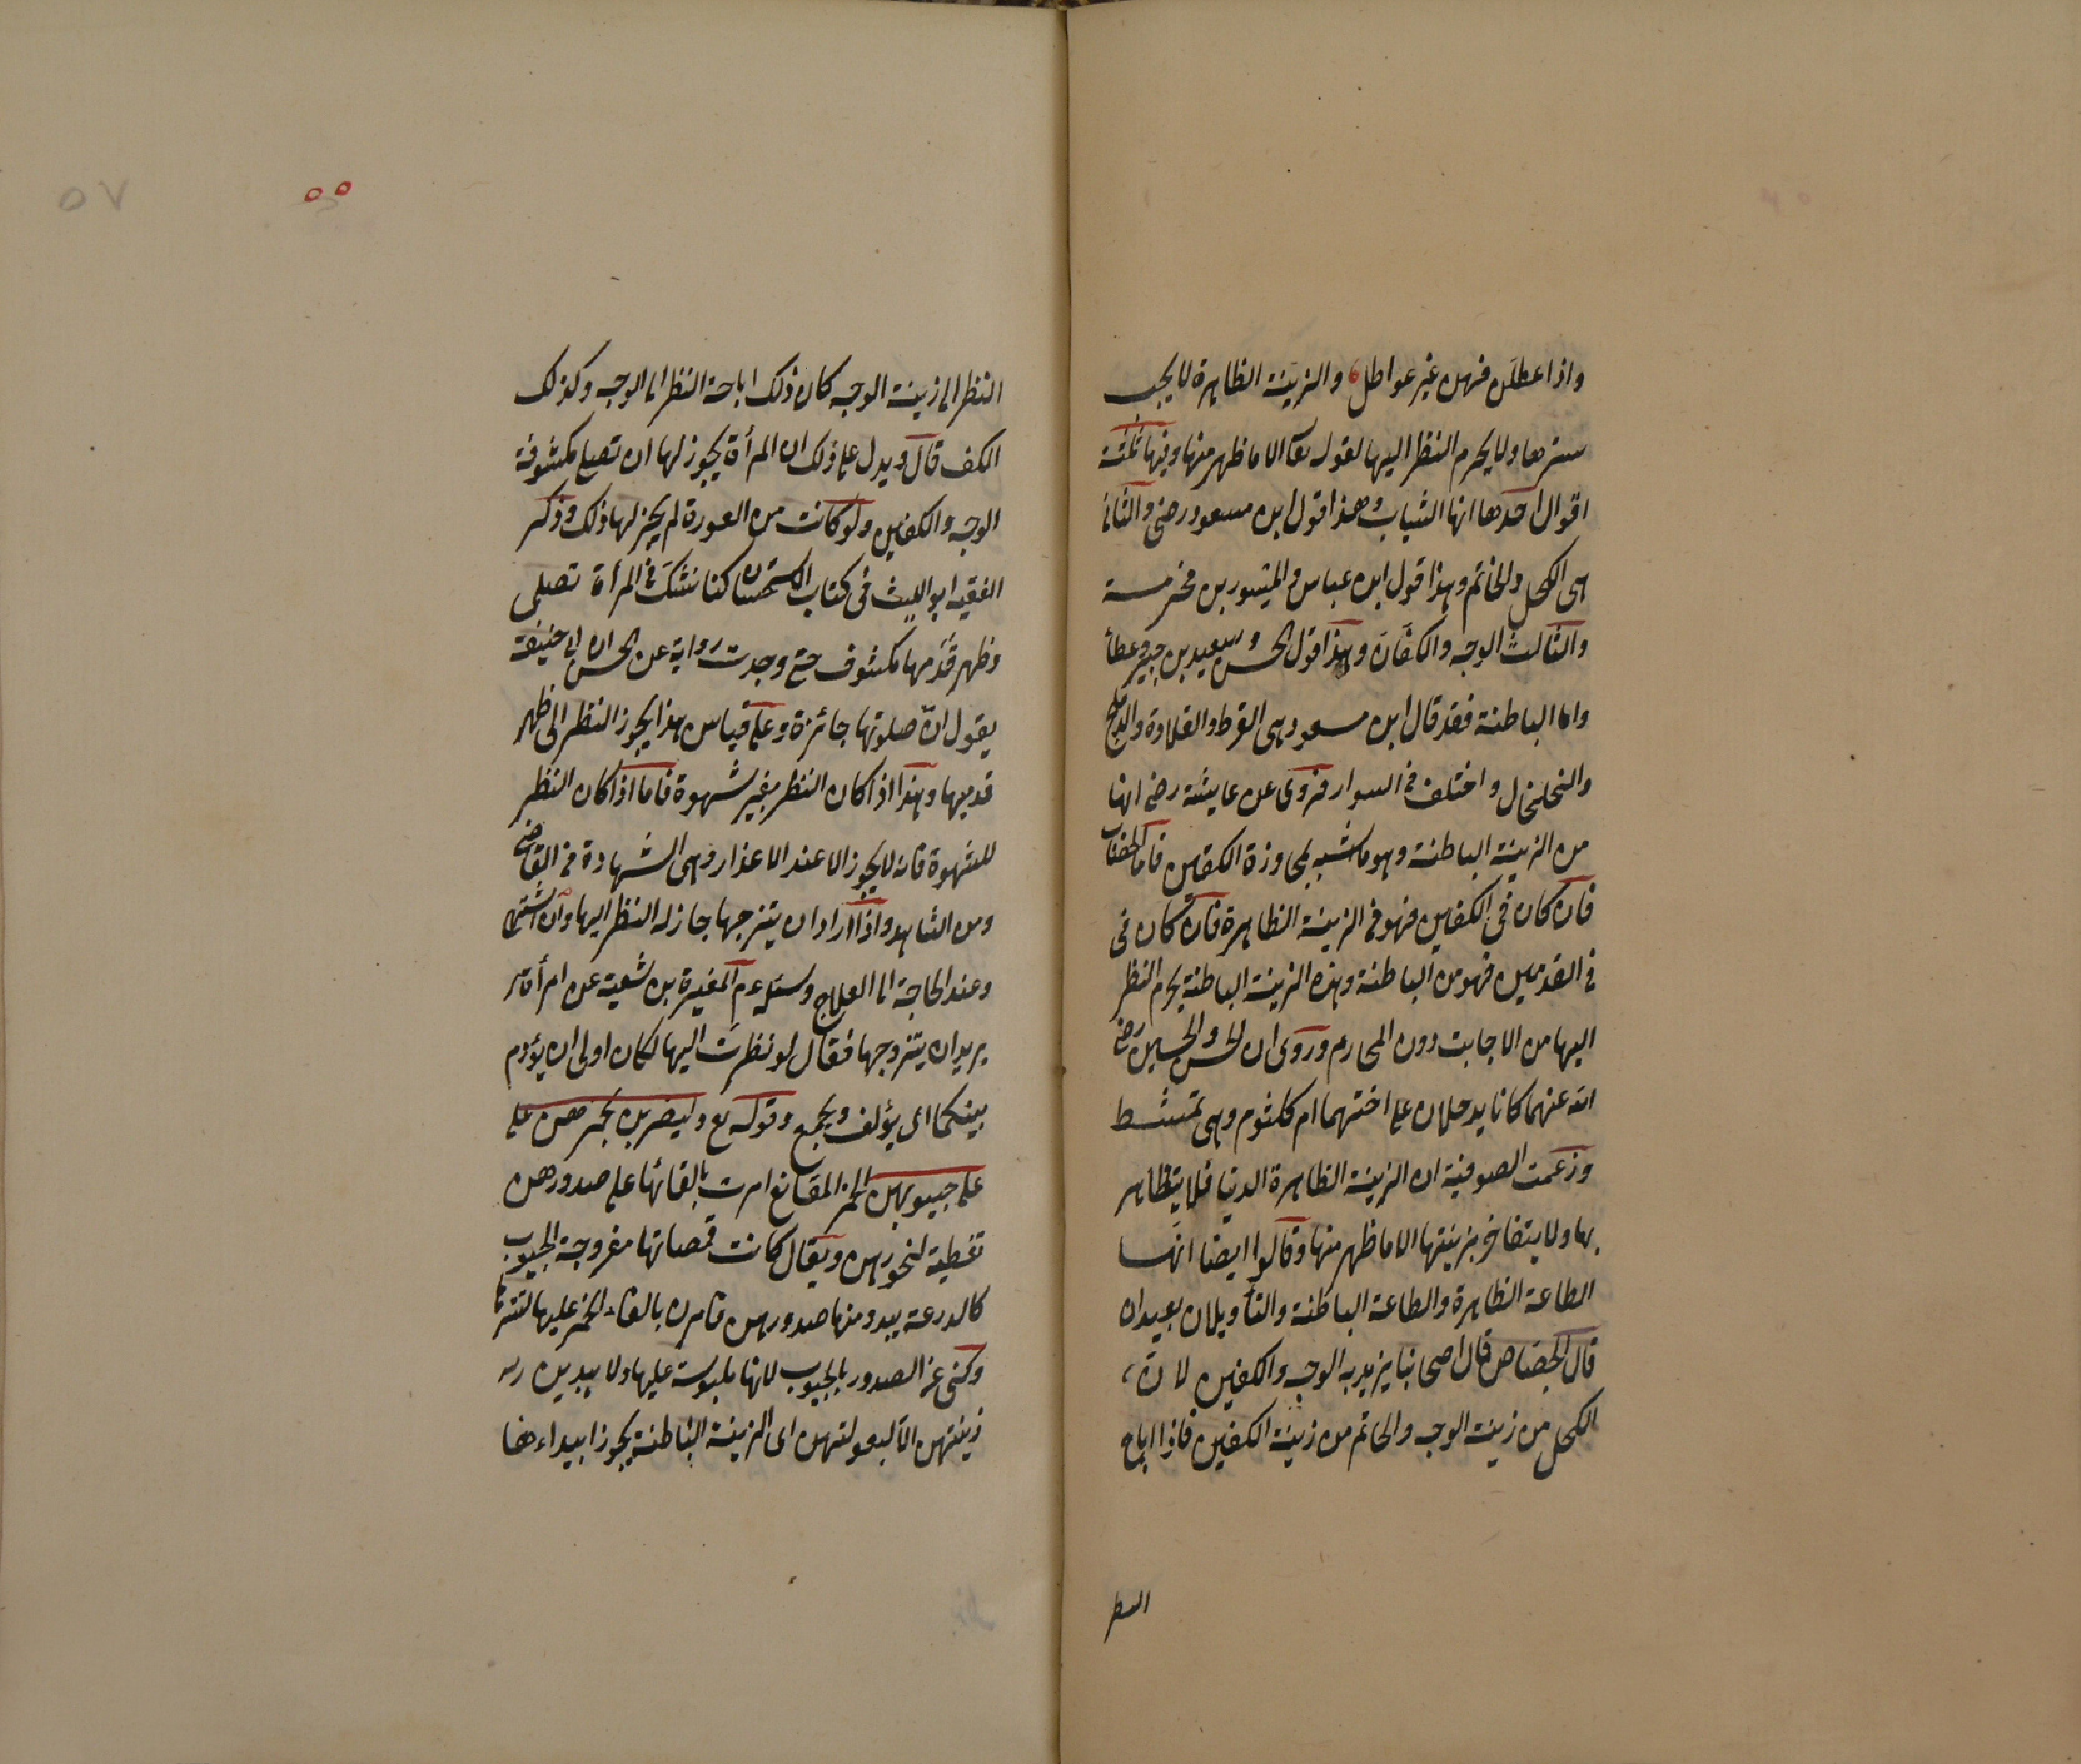 واذا عطلن فهن غير عواطل والزينة الظاهرة لا يجب
سترها ولا يحرم النظر اليها لقوله تعا الا ما ظهر منها وفيها ثلثة
اقوال احدها انها الثياب وهذا قول ابن مسعود رضى والثانى
هى الكحل والخاتم وهذا قول ابن عباس والمسور بن مخرمة
والثالث الوجه والكفان وهذا قول الحسن وسعيد بن جبير وعطأ
واما الباطنة فقد قال ابن مسعود هى القرط والقلادة والدملج
والخلخال واختلف فى السوار فروى عن عايشة رضى انها
من الزينة الباطنة وهو ما شبه لمجاوزة الكفين فاما الخضاب
فان كان فى الكفين فهو فى الزينة الظاهرة فان كان فى
فى القدمين فهو من الباطنة وهذه الزينة الباطنة يحرم النظر
اليها من الاجانب دون المحارم وروى ان الحسن والحسين رضى
الله عنهما كانا يدخلان على اختهما ام كلثوم وهى تمتشط
وزعمت الصوفية ان الزينة الظاهرة الدنيا فلا يتظاهر
بها ولا يتفاخر بزينتها الا ما ظهر منها وقالوا ايضا انها
الطاعة الظاهرة والطاعة الباطنة والتأويلان بعيدان
قال الجصاص قال اصحابنا يريد به الوجه والكفين لان
الكحل من زينة الوجه والخاتم من زينة الكفين فاذا اباح
النظر
٥٧
٥٥
النظر الى زينة الوجه كان ذلك اباحة النظر الى الوجه وكذلك
الكف قال ويدل على ذلك ان المرأة يجوز لها ان تصلى مكشوفة
الوجه والكفين ولو كانت من العورة لم يجز لها ذلك وذكر
الفقيه ابو الليث فى كتاب الاستحسان كنا نشك فى المرأة تصلى
وظهر قدمها مكشوف حتى وجدت رواية عن الحسن ان ابى حنيفة
يقول ان صلوتها جائزة وعلى قياس هذا يجوز النظر الى ظهر
قدميها وهذا اذا كان النظر بغير شهوة فاما اذا كان النظر
للشهوة فانه لا يجوز الا عند الاعذار وهى الشهادة فى القاضى
ومن الشاهد واذا اراد ان يتزوجها جاز له النظر اليها وان اشتهى
وعند الحاجة الى العلاج وسئل عم المغيرة بن شعبة عن امرأة
يريد ان يتزوجها فقال لو نظرت اليها لكان اولى ان يؤدم
بينكما اى يؤلف ويجمع وقوله تع وليضربن بخمرهن على
على جيوبهن الخمر المقانع امرت بالقائها على صدورهن
تغطية لنحورهن ويقال كانت قمصانها مفروجة الجيوب
كالدرعة يبدو منها صدورهن فامرن بالقاء الخمر عليها لتسترها
وكنى عن الصدور بالجيوب لانها ملبوسة عليها ولا يبدين
زينتهن الا لبعولتهن اى الزينة الباطنة يجوز ابداءها